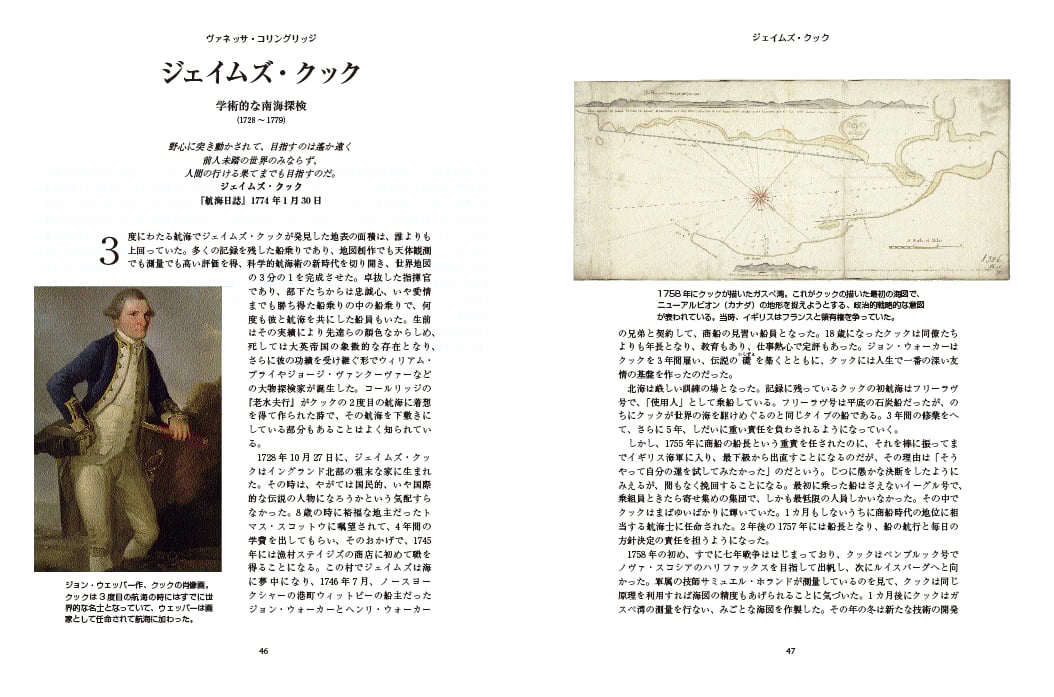 ヴァネッサ・コリングリッジ
ジェイムズ・クック
学術的な南海探検
(1728 ～ 1779)
野心に突き動かされて、目指すのは遙か遠く
前人未踏の世界のみならず、
人間の行ける果てまでも目指すのだ。
ジェイムズ・クック
『航海日誌』1774 年 1 月 30 日
3 度にわたる航海でジェイムズ・クックが発見した地表の面積は、誰よりも
上回っていた。多くの記録を残した船乗りであり、地図制作でも天体観測
でも測量でも高い評価を得、科学的航海術の新時代を切り開き、世界地図
の 3 分の 1 を完成させた。卓抜した指揮官
であり、部下たちからは忠誠心、いや愛情
までも勝ち得た船乗りの中の船乗りで、何
度も彼と航海を共にした船員もいた。生前
はその実績により先達らの顔色なからしめ、
死しては大英帝国の象徴的な存在となり、
さらに彼の功績を受け継ぐ形でウィリアム・
ブライやジョージ・ヴァンクーヴァーなど
の大物探検家が誕生した。コールリッジの
『老水夫行』がクックの 2 度目の航海に着想
を得て作られた詩で、その航海を下敷きに
している部分もあることはよく知られてい
る。
1728 年 10 月 27 日に、ジェイムズ・クッ
クはイングランド北部の粗末な家に生まれ
た。その時は、やがては国民的、いや国際
的な伝説の人物になろうかという気配すら
なかった。8 歳の時に裕福な地主だったト
マス・スコットウに嘱望されて、4 年間の
学費を出してもらい、そのおかげで、1745
年には漁村ステイズの商店に初めて職を
得ることになる。この村でジェイムズは海
に夢中になり、1746 年 7 月、ノースヨーク
シャーの港町ウィットビーの船主だった
ジョン・ウォーカーとヘンリ・ウォーカー
ジョン・ウェッバー作、クックの肖像画。
クックは 3 度目の航海の時にはすでに世
界的な名士となっていて、ウェッバーは画
家として任命されて航海に加わった。
46
ジェイムズ・クック
1758 年にクックが描いたガスペ湾。これがクックの描いた最初の海図で、
ニューアルビオン（カナダ）の地形を捉えようとする、政治的戦略的な意図
が表われている。当時、イギリスはフランスと領有権を争っていた。
の兄弟と契約して、商船の見習い船員となった。18 歳になったクックは同僚たち
よりも年長となり、教育もあり、仕事熱心で定評もあった。ジョン・ウォーカーは
クックを 3 年間雇い、伝説の礎を築くとともに、クックには人生で一番の深い友
情の基盤を作ったのだった。
北海は厳しい訓練の場となった。記録に残っているクックの初航海はフリーラヴ
号で、「使用人」として乗船している。フリーラヴ号は平底の石炭船だったが、の
ちにクックが世界の海を駆けめぐるのと同じタイプの船である。3 年間の修業をへ
て、さらに 5 年、しだいに重い責任を負わされるようになっていく。
しかし、1755 年に商船の船長という重責を任されたのに、それを棒に振ってま
でイギリス海軍に入り、最下級から出直すことになるのだが、その理由は「そう
やって自分の運を試してみたかった」のだという。じつに愚かな決断をしたように
みえるが、間もなく挽回することになる。最初に乗った船はさえないイーグル号で、
乗組員ときたら寄せ集めの集団で、しかも最低限の人員しかいなかった。その中で
クックはまばゆいばかりに輝いていた。1 カ月もしないうちに商船時代の地位に相
当する航海士に任命された。2 年後の 1757 年には船長となり、船の航行と毎日の
方針決定の責任を担うようになった。
1758 年の初め、すでに七年戦争ははじまっており、クックはペンブルック号で
ノヴァ・スコシアのハリファックスを目指して出帆し、次にルイスバーグへと向
かった。軍属の技師サミュエル・ホランドが測量しているのを見て、クックは同じ
原理を利用すれば海図の精度もあげられることに気づいた。1 カ月後にクックはガ
スペ湾の測量を行ない、みごとな海図を作製した。その年の冬は新たな技術の開発
47